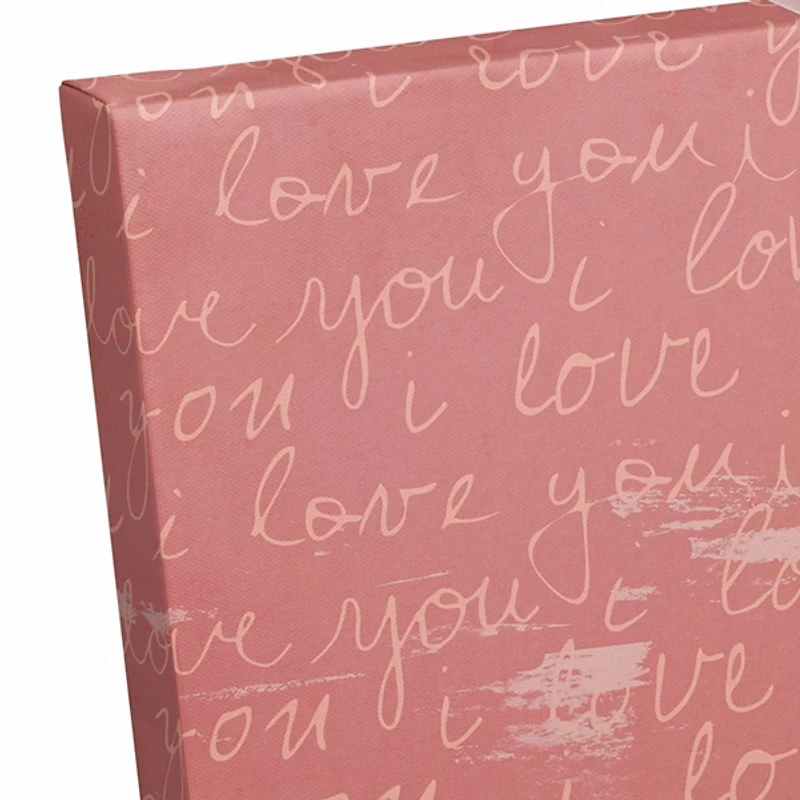 you i love y
i love you i
love you i lov
you i love
i love you i
love you i lo
you i love
you i lo